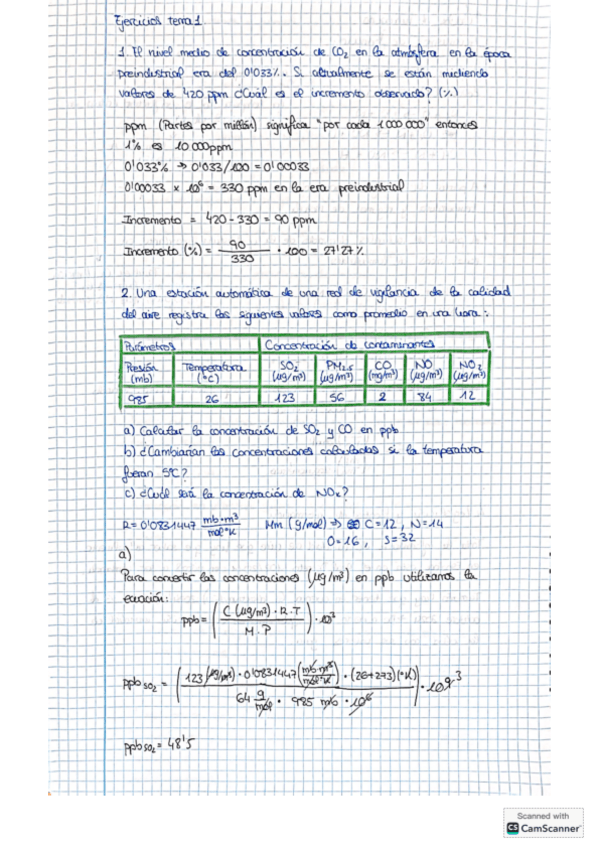 Ejercicios tema 1
1. El nivel medio de concentración de CO2 en la atmósfera en la época
preindustrial era del 0'033%. Si actualmente se están midiendo
valores de 420 ppm ¿Cuál es el incremento observado? (%)
ppm (Partes por millón) significa "por cada 1 000 000" entonces
1% es 10 000ppm
0'033% → 0'033/100 = 0'00033
0'00033 x 10^6 = 330 ppm en la era preindustrial
Incremento = 420 - 330 = 90 ppm
Incremento (%) = 90/330 · 100 = 27'27%
2. Una estación automática de una red de vigilancia de la calidad
del aire registra los siguientes valores como promedio en una hora:
Parámetros Concentración de contaminantes
Presión (mb) Temperatura (°C) SO2 (µg/m³) PM2.5 (µg/m³) CO (mg/m³) NO (µg/m³) NO2 (µg/m³)
985 26 123 56 2 84 12
a) Calcular la concentración de SO2 y CO en ppb
b) ¿Cambiarían las concentraciones calculadas si la temperatura
fueran 5°C?
c) ¿Cuál será la concentración de NOx?
R = 0'0831447 mb·m³/mol·K Mm (g/mol) ⇒ C=12, N=14
O=16, S=32
a)
Para convertir las concentraciones (µg/m³) en ppb utilizamos la
ecuación:
ppb = (C (µg/m³) · R · T / M · P) · 10³
ppb SO2 = (123 (µg/m³) · 0'0831447 (mb·m³/mol·K) · (26+273)(°K) / 64 g/mol · 985 mb · 10^6) · 10^9 3
ppb SO2 = 48'5
Scanned with
CS CamScanner